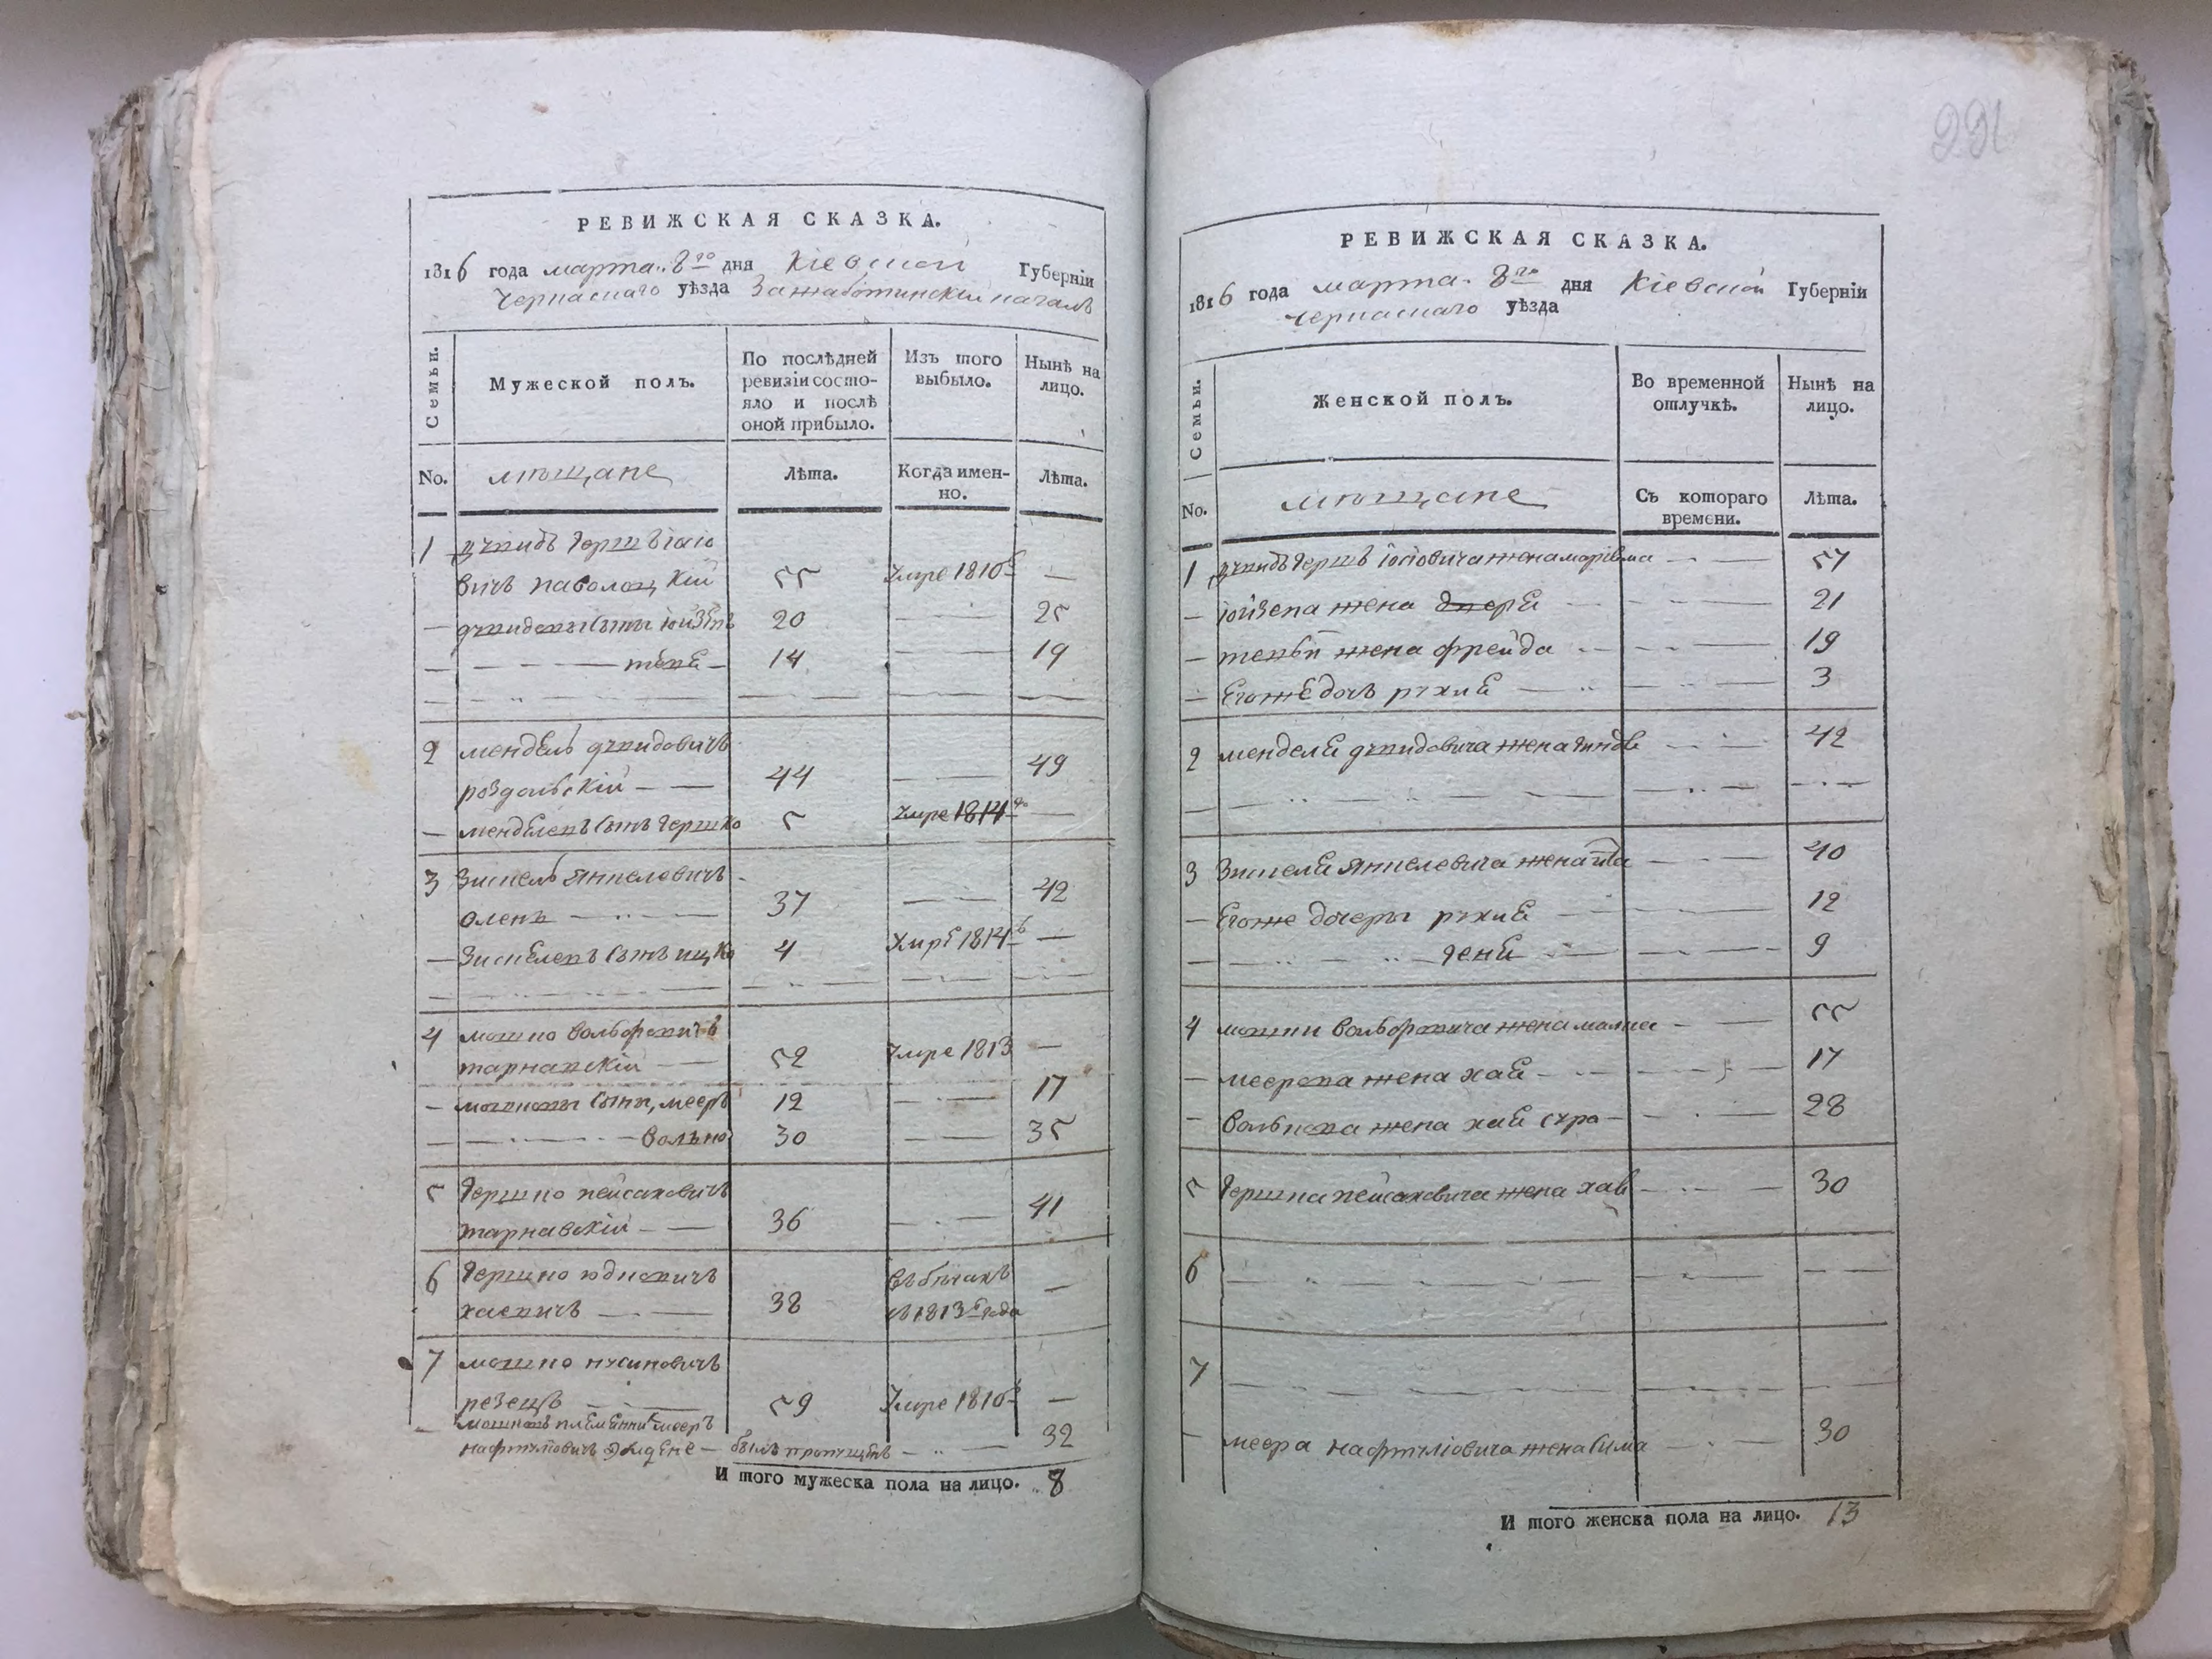 РЕВИЖСКАЯ СКАЗКА.
1816 года марта 8го дня Кіевской Губерніи
Черкаскаго уѣзда
Семьи.
Мужеской полъ.
По послѣдней ревизіи состояло и послѣ оной прибыло.
Изъ того выбыло.
Нынѣ на лицо.
No. мѣщане
Лѣта.
Когда именно.
Лѣта.
1 Герш
вичъ Паволоцкій 55 Умре 1810 —
20 25
14 19
2 мендель
роздольскій 44 49
менделевъ сынъ гершко 5 Умре 1814го
3 Зисель Янкелевичъ
37 42
Зиселевъ сынъ ицко 4 Умре 1814
4 мошко вольфовичъ
тарнавскій 52 Умре 1813 —
мошковы сыны, мееръ 12 17
волько 30 35
5 гершко пейсаховичъ
тарнавскій 36 41
6 гершко юдковичъ
38 1813го года —
7 мошко нусиновичъ
резецъ 59 Умре 1810 —
мошковъ племянникъ мееръ
былъ пропущенъ 32
И того мужеска пола на лицо. 8
991
РЕВИЖСКАЯ СКАЗКА.
1816 года марта 8го дня Кіевской Губерніи
Черкаскаго уѣзда
Семьи.
Женской полъ.
Во временной отлучкѣ.
Нынѣ на лицо.
No. мѣщане
Съ котораго времени.
Лѣта.
1 жена 57
жена 21
жена фрейда 19
Егоже дочь рухля 3
2 менделя жена 42
3 Зиселя Янкелевича жена 40
Егоже дочери рухля 12
геня 9
4 мошки вольфовича жена малка 55
меерова жена хая 17
волькова жена хая сура 28
5 гершка пейсаховича жена хава 30
6
7
меера нафтуліовича жена сима 30
И того женска пола на лицо. 13